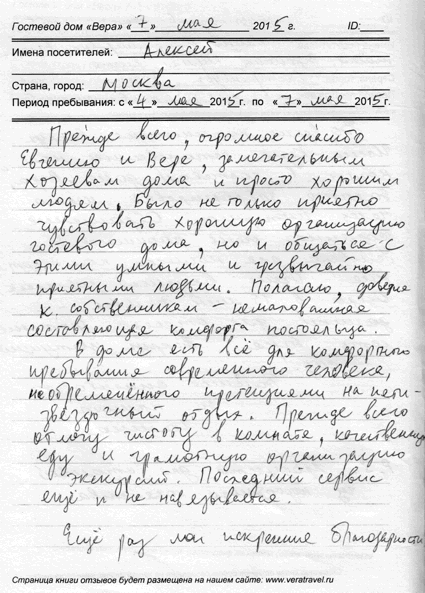 Гостевой дом «Вера» «7» мая 2015 г. ID:
Имена посетителей: Алексей
Страна, город: Москва
Период пребывания: с «4» мая 2015 г. по «7» мая 2015 г.
Прежде всего, огромное спасибо
Евгению и Вере, замечательным
хозяевам дома и просто хорошим
людям. Было не только приятно
чувствовать хорошую организацию
гостевого дома, но и общаться с
этими умными и чрезвычайно
приятными людьми. Полагаю, доверие
к собственникам – немаловажная
составляющая комфорта постояльца.
В доме есть всё для комфортного
пребывания современного человека,
необременённого претензиями на пяти-
звёздочный отдых. Прежде всего
отмечу чистоту в комнате, качественную
еду и грамотную организацию
экскурсий. Последний сервис
ещё и не навязывается.
Ещё раз мои искренние благодарности
Страница книги отзывов будет размещена на нашем сайте: www.veratravel.ru